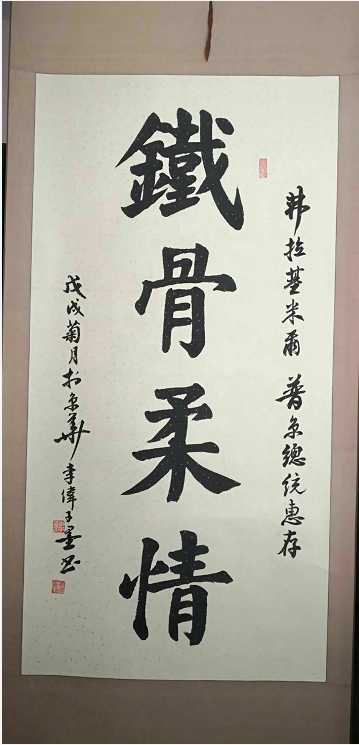 弗拉基米爾 普京總統惠存
鐵骨柔情
戊戌菊月於京華 李偉玉墨書